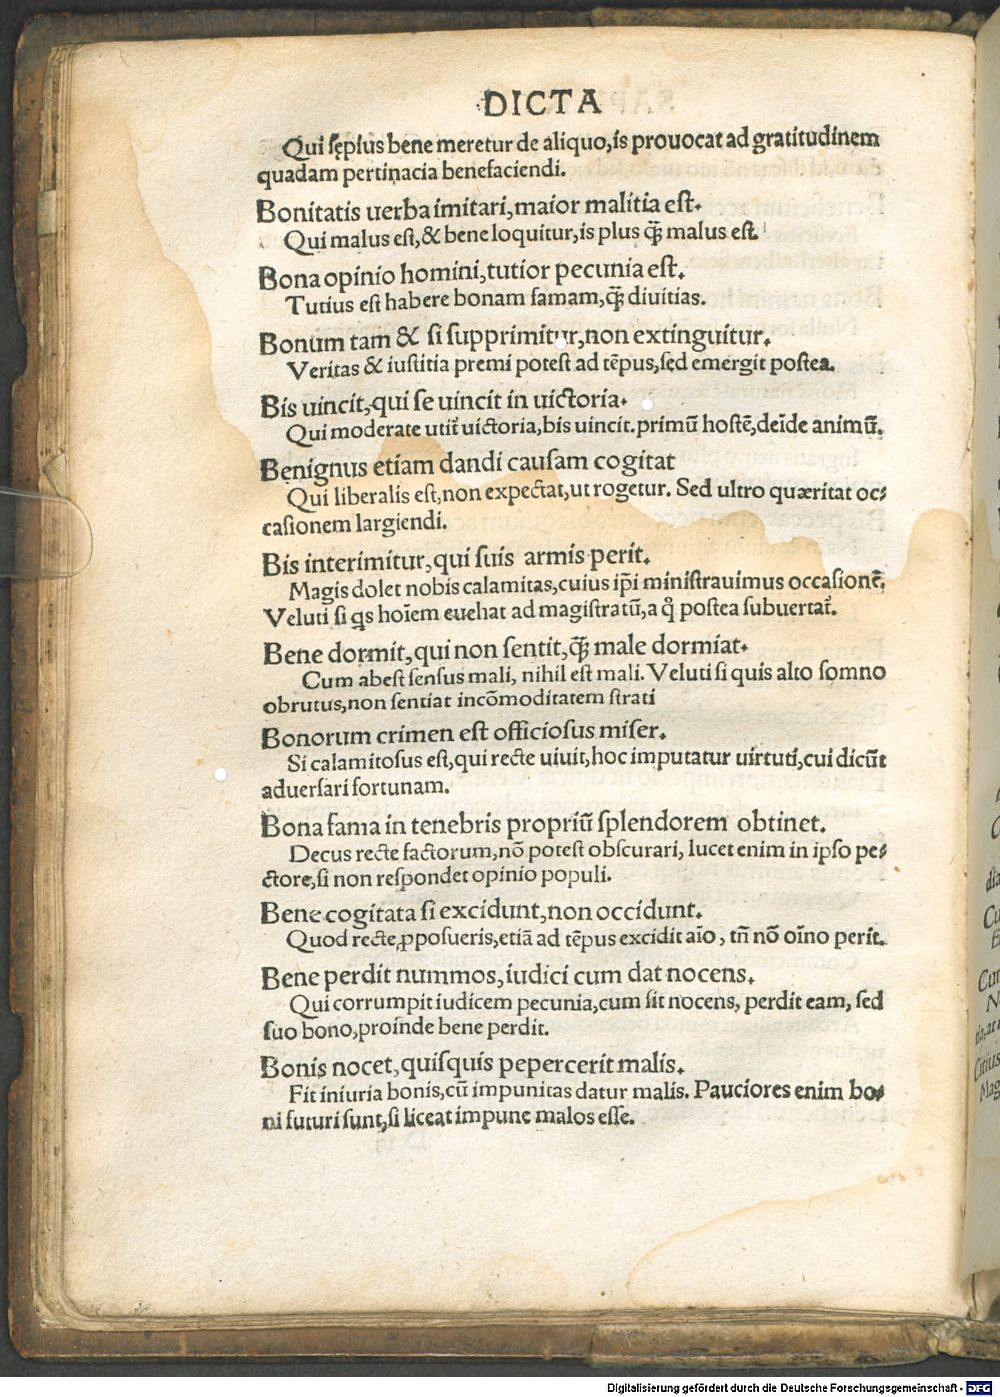 DICTA
Qui sępius bene meretur de aliquo,is prouocat ad gratitudinem
quadam pertinacia benefaciendi.
Bonitatis uerba imitari,maior malitia est.
Qui malus est,& bene loquitur,is plus q̄ malus est.
Bona opinio homini,tutior pecunia est.
Tutius est habere bonam famam,q̄ diuitias.
Bonum tam & si supprimitur,non extinguitur.
Veritas & iustitia premi potest ad tēpus,sed emergit postea.
Bis uincit,qui se uincit in uictoria.
Qui moderate utit̄ uictoria,bis uincit.primū hostē,deīde animū.
Benignus etiam dandi causam cogitat
Qui liberalis est,non expectat,ut rogetur. Sed ultro quæritat oc-
casionem largiendi.
Bis interimitur,qui suis armis perit.
Magis dolet nobis calamitas,cuius ip̄i ministrauimus occasionē.
Veluti si qs hoīem euehat ad magistratū,a q̊ postea subuertat̄.
Bene dormit,qui non sentit,q̄ male dormiat.
Cum abest sensus mali, nihil est mali. Veluti si quis alto somno
obrutus,non sentiat incōmoditatem strati
Bonorum crimen est officiosus miser.
Si calamitosus est,qui recte uiuit,hoc imputatur uirtuti,cui dicūt
aduersari fortunam.
Bona fama in tenebris propriū splendorem obtinet.
Decus recte factorum,nō potest obscurari, lucet enim in ipso pe-
ctore,si non respondet opinio populi.
Bene cogitata si excidunt,non occidunt.
Quod recte,ꝓposueris,etiā ad tēpus excidit aīo, tn̄ nō oīno perit.
Bene perdit nummos,iudici cum dat nocens.
Qui corrumpit iudicem pecunia,cum sit nocens, perdit eam, sed
suo bono,proinde bene perdit.
Bonis nocet,quisquis pepercerit malis.
Fit iniuria bonis,cū impunitas datur malis. Pauciores enim bo-
ni futuri sunt,si liceat impune malos esse.
Digitalisierung gefördert durch die Deutsche Forschungsgemeinschaft - DFG